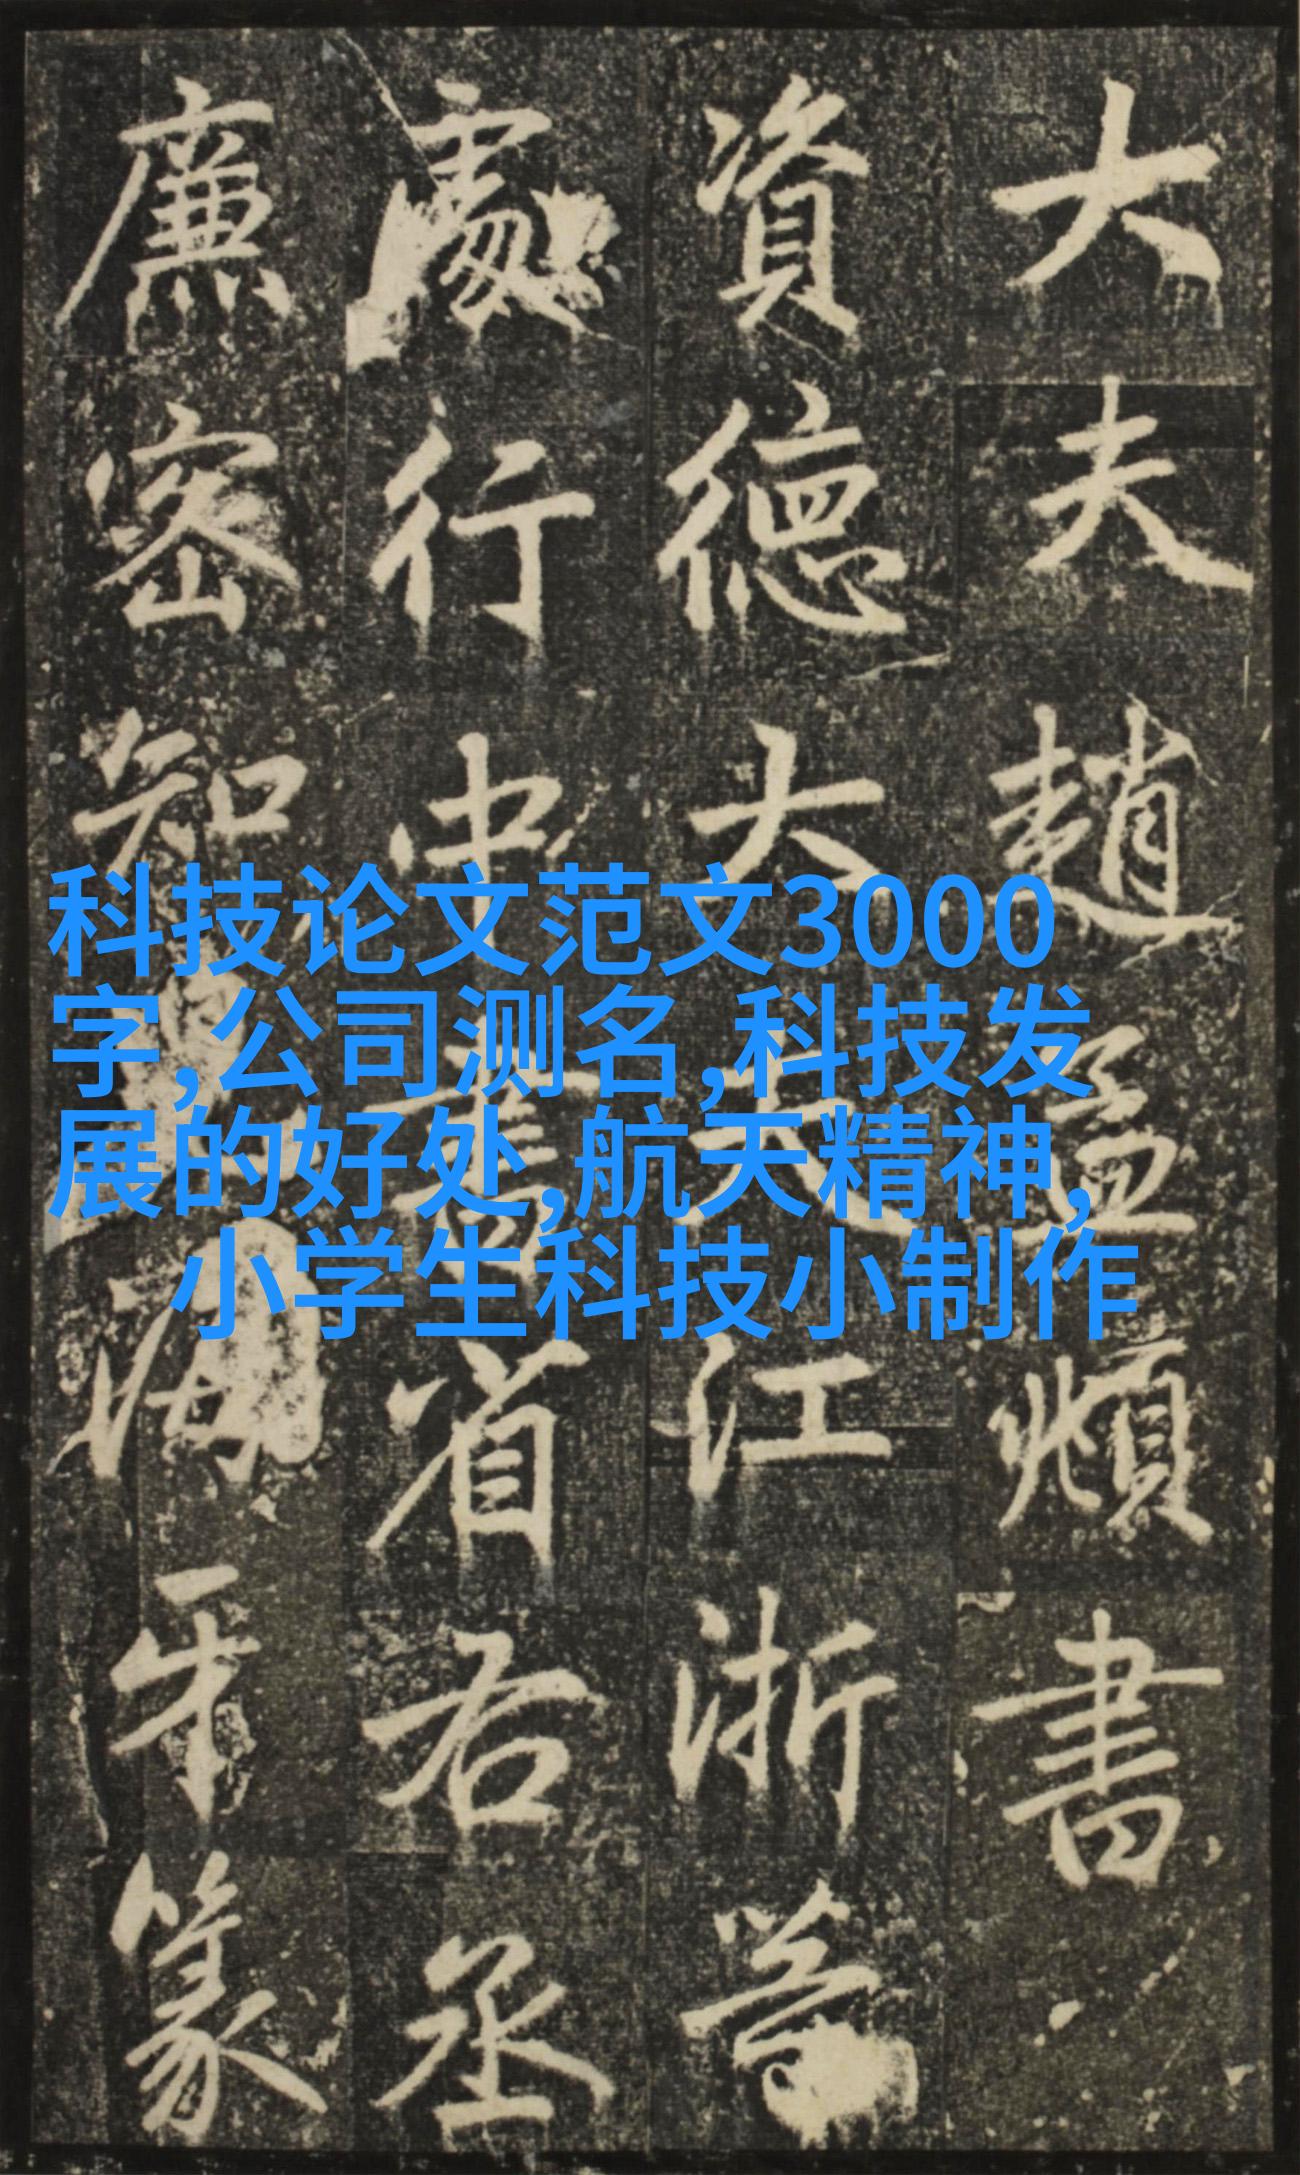 大夫趙孟頫書
資德大夫江浙等
處行中書省右丞
廉密知海牙篆
科技论文范文3000
字,公司测名,科技发
展的好处,航天精神,
小学生科技小制作